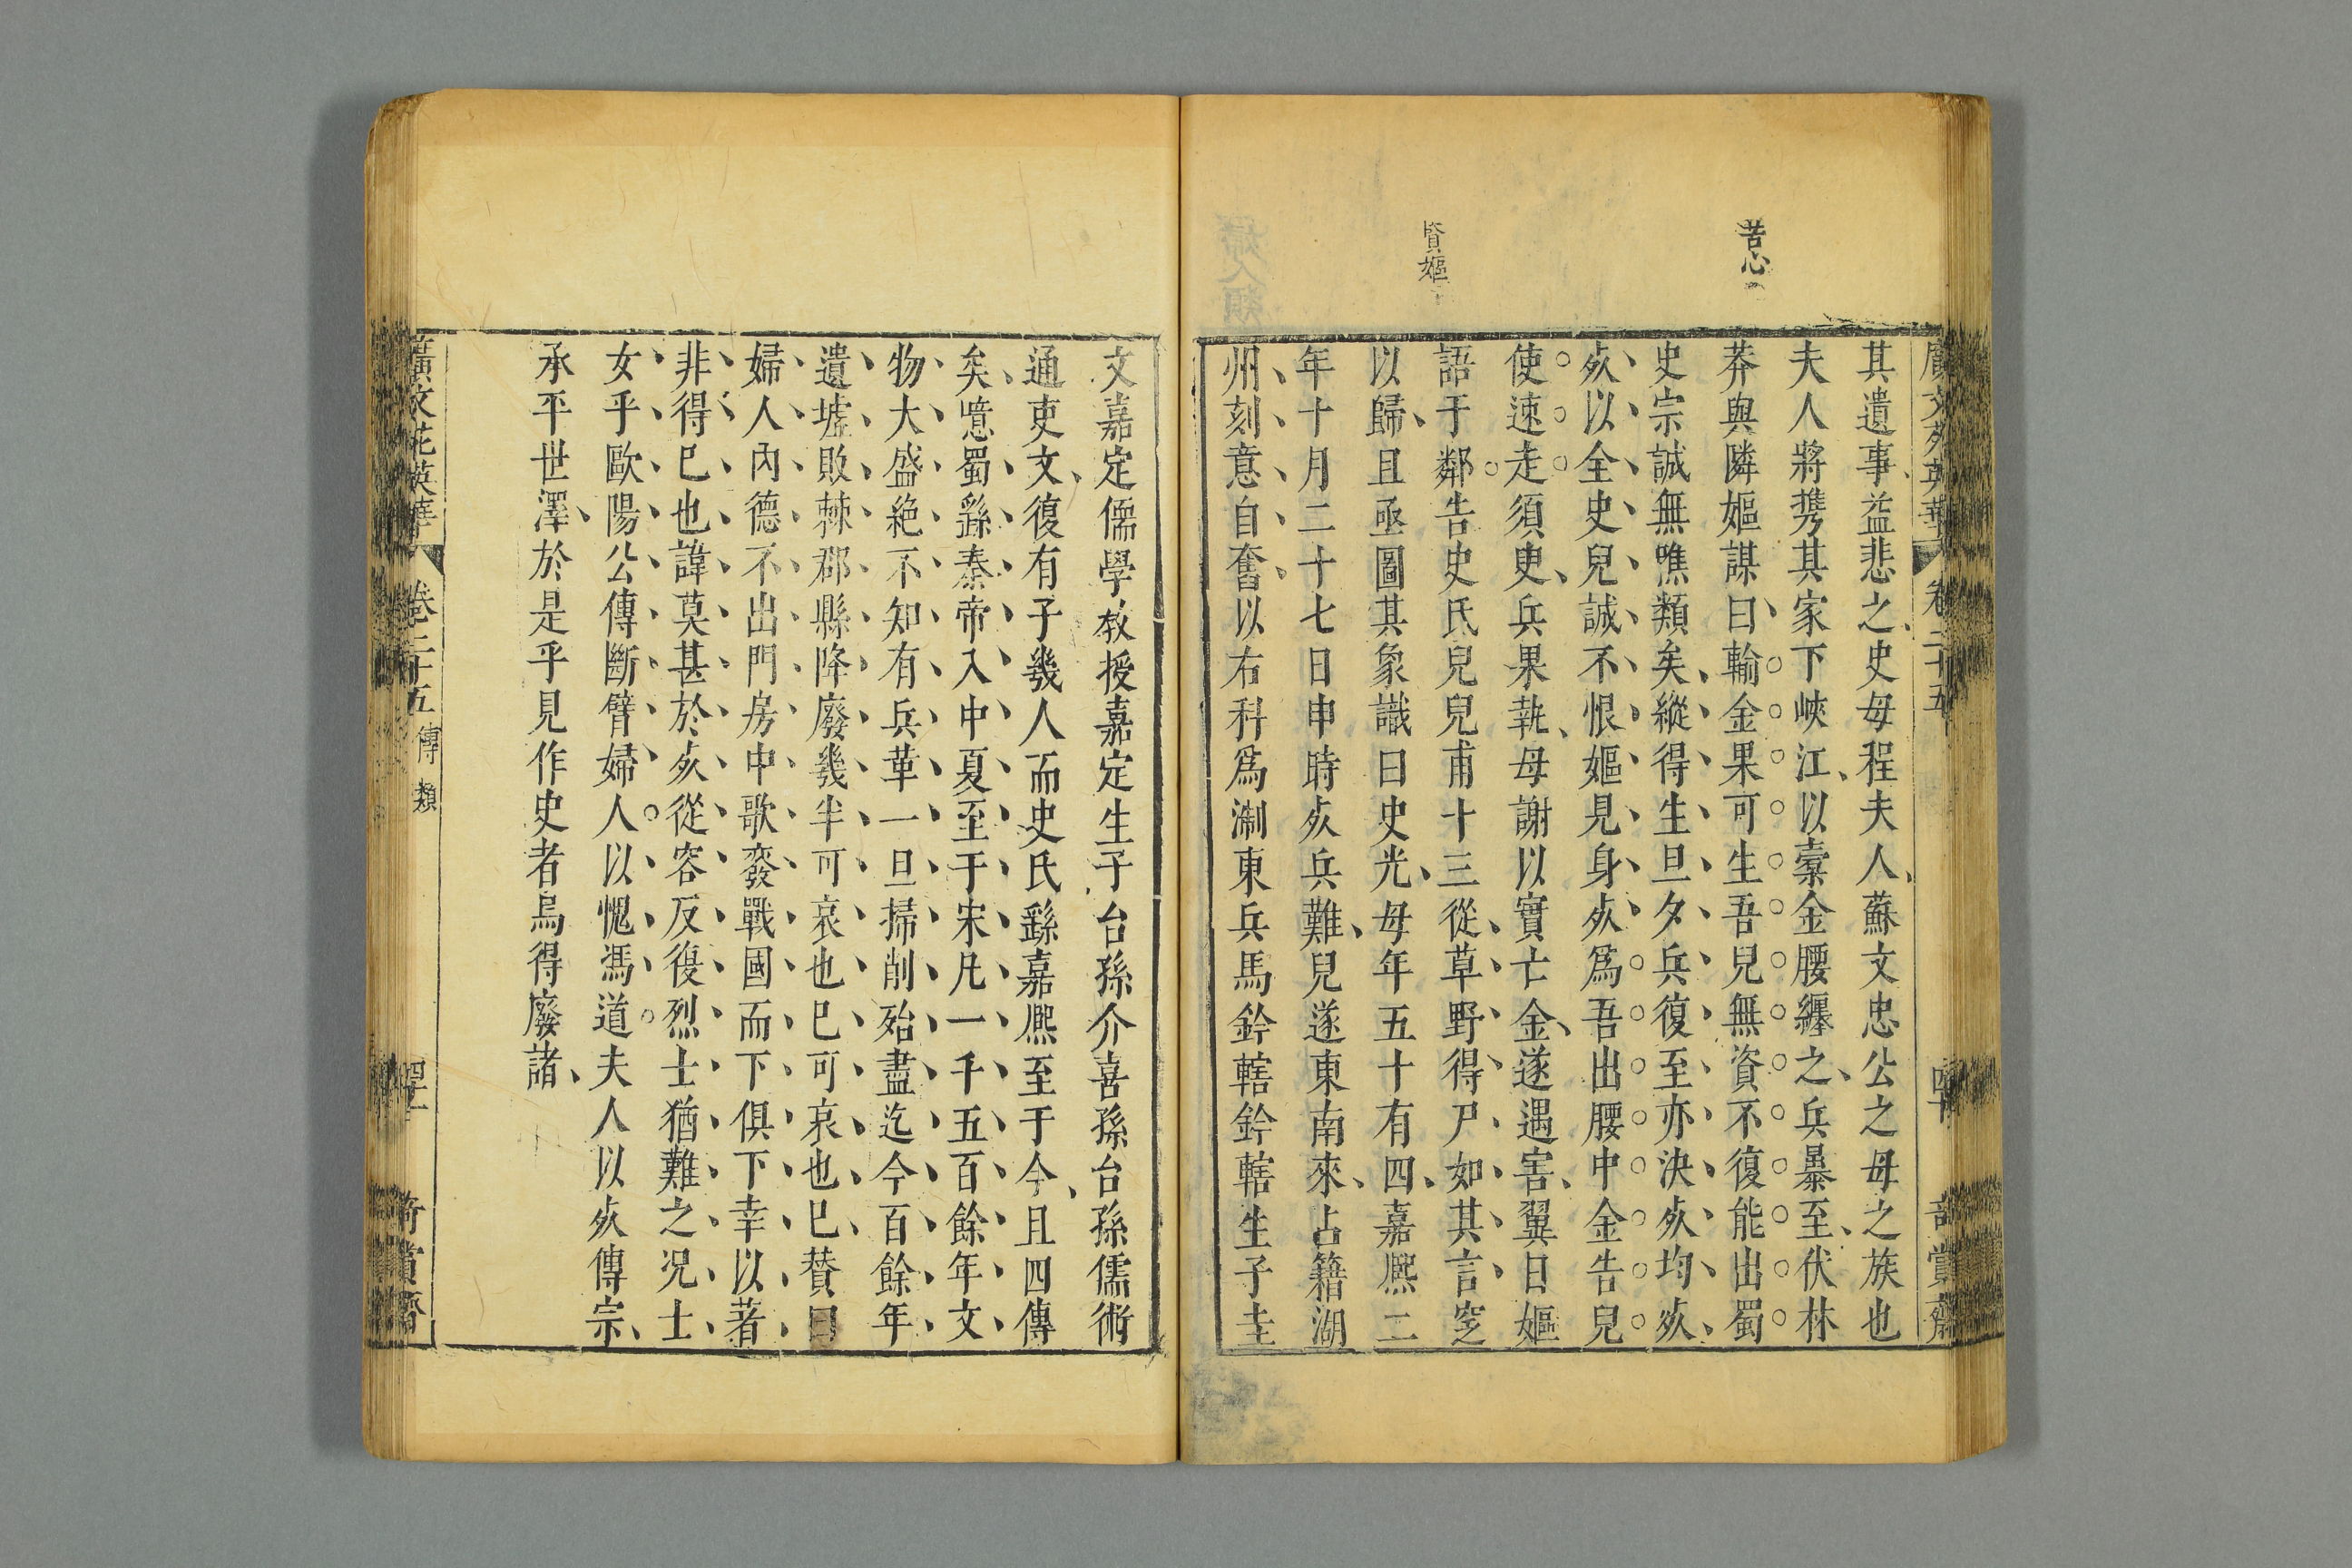 苦心
賢嫗
其遺事益悲之史母程夫人蘇文忠公之母之族也
夫人將携其家下峽江以橐金腰纏之兵暴至伏林
莽與隣嫗謀曰輸金果可生吾兒無資不復能出蜀
史宗誠無噍類矣縱得生旦夕兵復至亦決㱙均㱙
㱙以全史兒誠不恨嫗見身㱙爲吾出腰中金告兒
使速走須臾兵果執母謝以實亡金遂遇害翼日嫗
語于鄰告史氏兒兒甫十三從草野得尸如其言窆
以歸且亟圖其象識曰史光母年五十有四嘉熈二
年十月二十七日申時㱙兵難兒遂東南來占籍湖
州刻意自奮以右科爲淛東兵馬鈐轄鈐轄生子圭
文嘉定儒學教授嘉定生子台孫介喜孫台孫儒術
通吏文復有子幾人而史氏繇嘉熈至于今且四傳
矣噫蜀繇秦帝入中夏至于宋凡一千五百餘年文
物大盛絶不知有兵革一旦掃削殆盡迄今百餘年
遺墟敗棘郡縣降廢幾半可哀也巳可哀也巳賛曰
婦人內德不出門房中歌發戰國而下俱下幸以著
非得巳也諱莫甚於㱙從容反復烈士猶難之况士
女乎歐陽公傳斷臂婦人以愧馮道夫人以㱙傳宗
承平世澤於是乎見作史者烏得廢諸
廣文苑英華 卷二十五 傳類